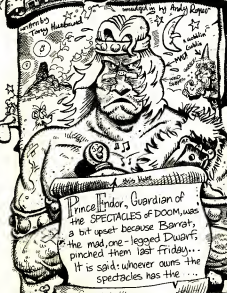 by Andy Roper
Prince Endor, Guardian of
the SPECTACLES of DOOM, was
a bit upset because Barrat,
the mad, one-legged Dwarf,
pinched them last Friday...
It is said: whoever owns the
spectacles has the ...